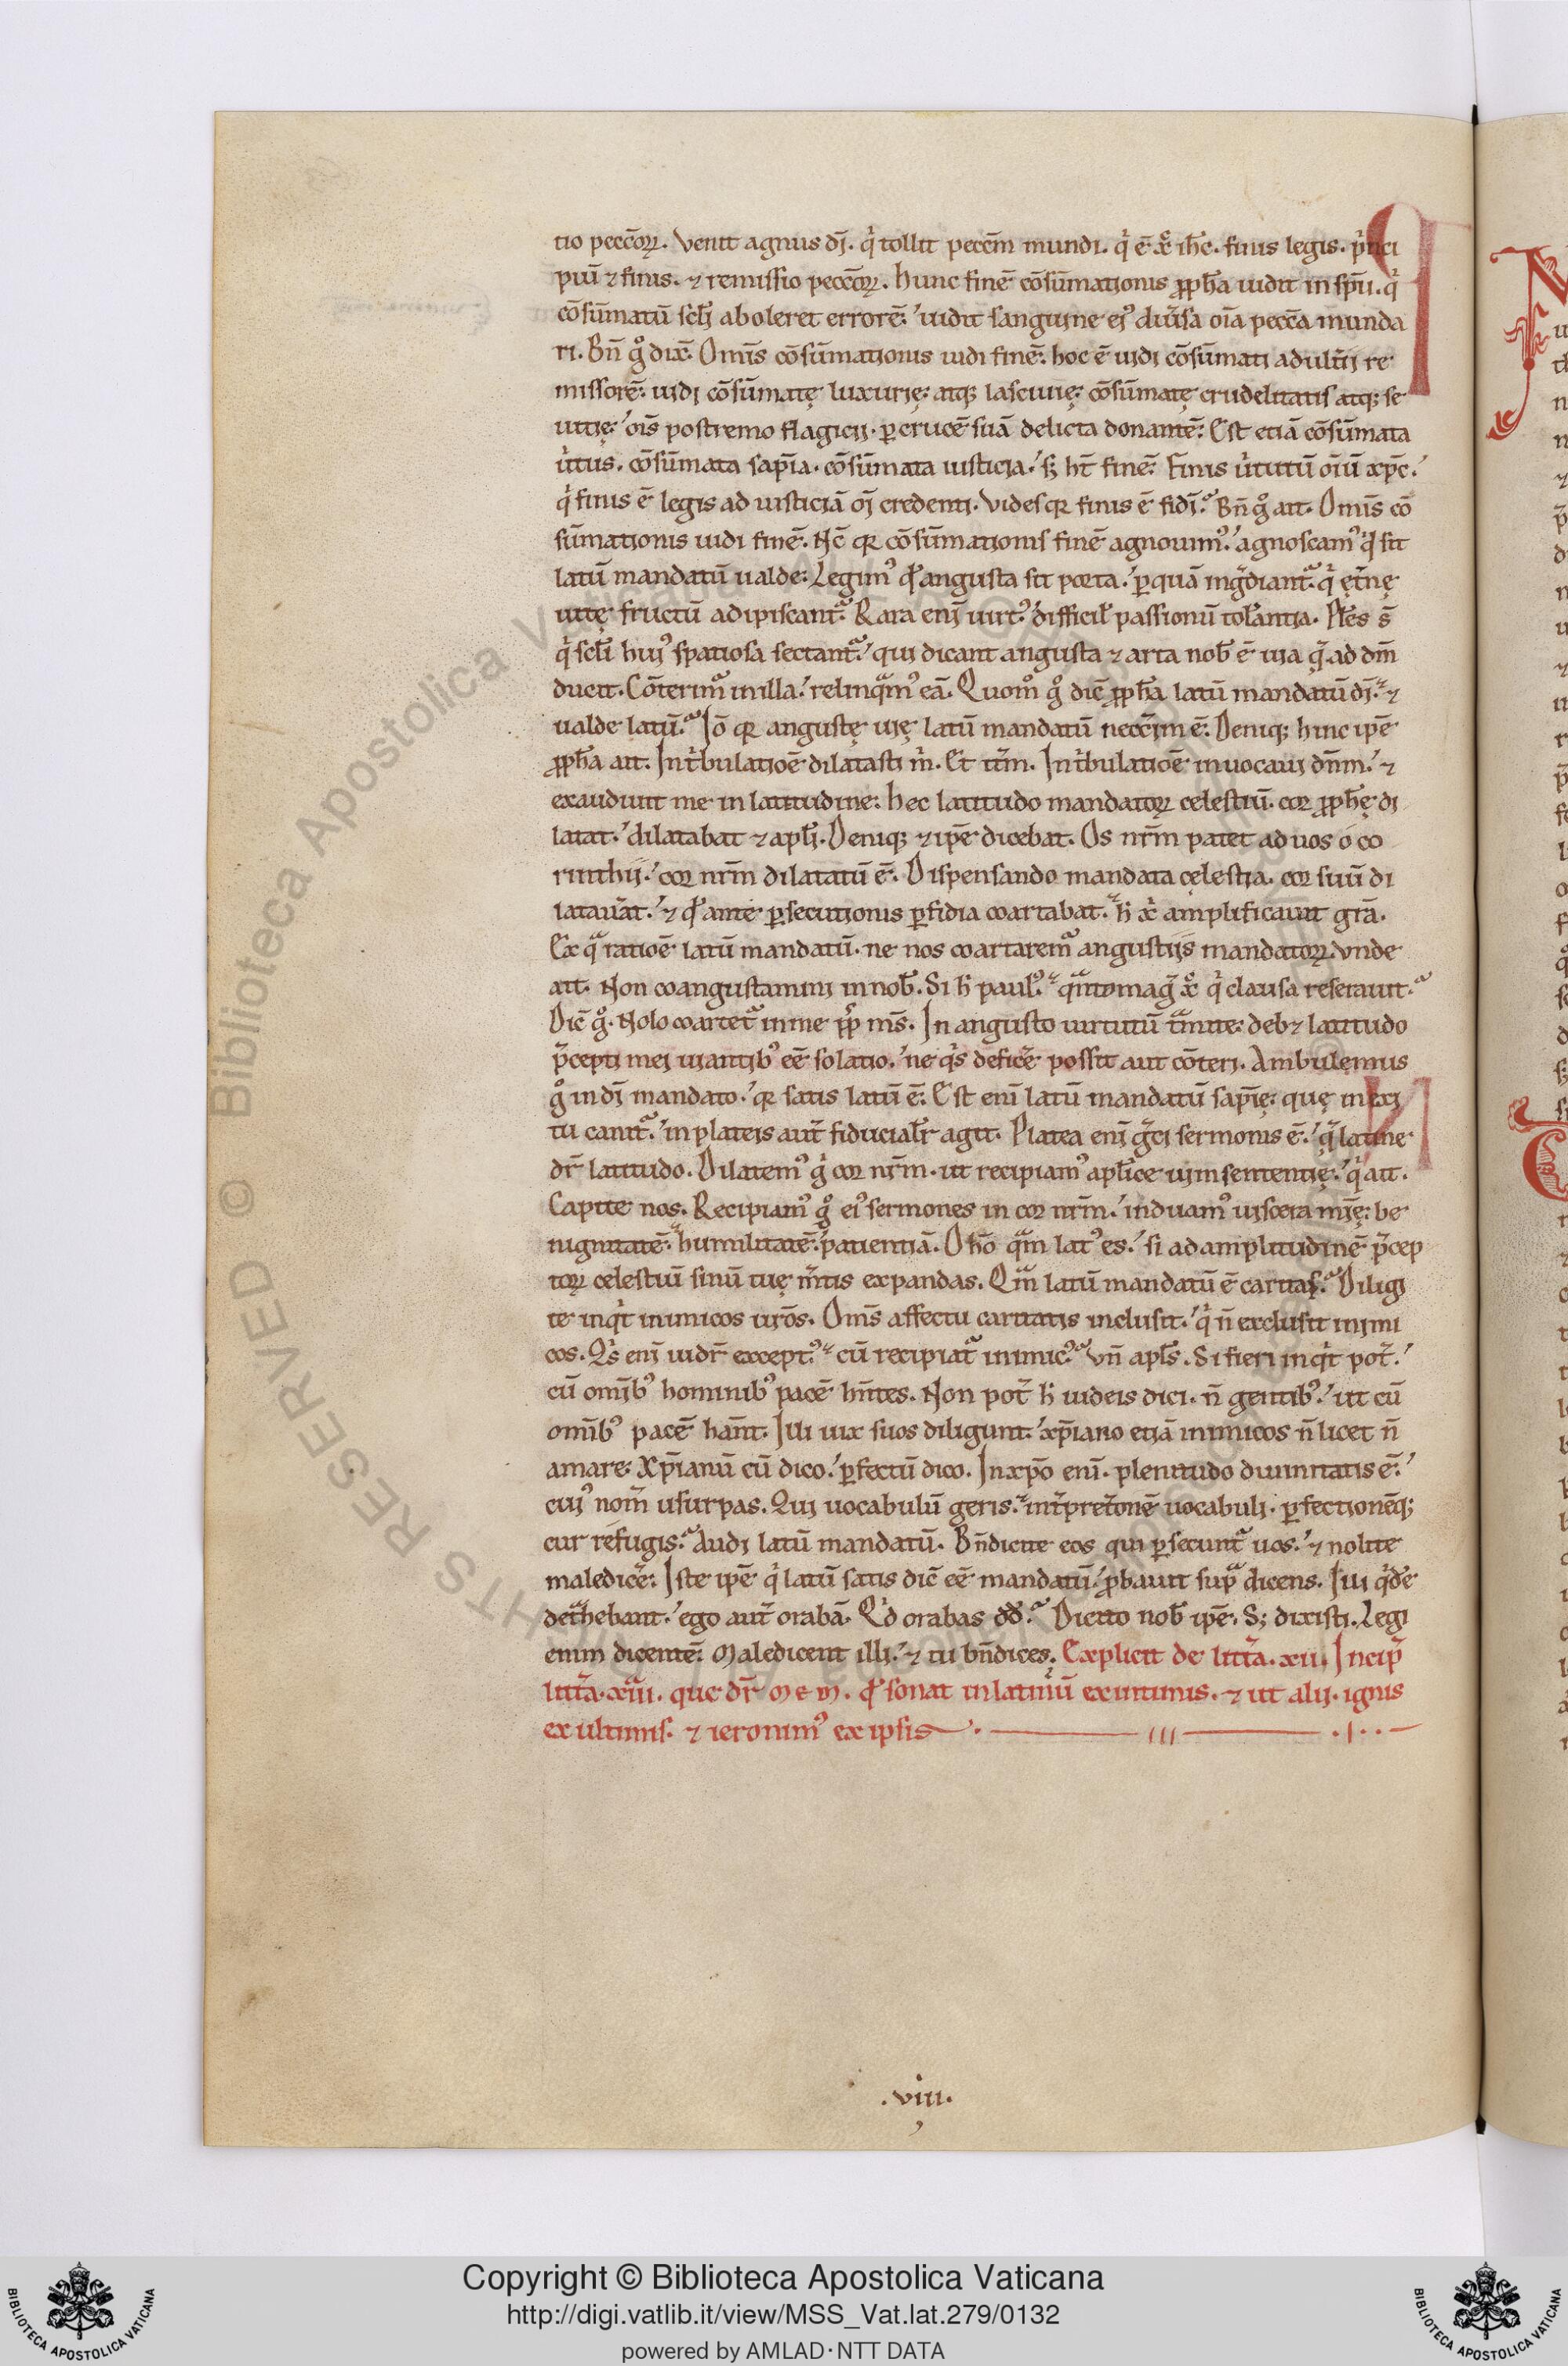 tio peccōꝝ. Venit agnus dī. q̍ tollit peccm̄ mundi. q̍ ē xp̄c ih̄c. finis legis. p̍nci
piū ⁊ finis. ⁊ remissio peccōꝝ. Hunc finē cōsūmationis ꝓph̄a uidit in sp̄u. q̍
cōsūmatū scl̄i aboleret errorē. uidit sanguine ei᾿ diu̾sa oīa pecc̄a munda
ri. Bn̄ gͦ dix̄. Omīs cōsūmationis uidi finē. hoc ē uidi cōsūmati adult̄ij re
missorē. uidi cōsūmatę luxurię. atq; lasciuię. cōsūmatę crudelitatis atq; se
uitię. oīs postremo flagicij. ꝑ crucē suā delicta donantē. Est etiā cōsūmata
u̍tus. cōsūmata sapīa. cōsūmata iusticia. sꝫ ht̄ finē. Finis u̍tutū oīū xp̄c.
q̍ finis ē legis ad iusticiā oī credenti. Vides qꝛ finis ē fidī. Bn̄ gͦ ait. Omīs cō
sūmationis uidi finē. Nc̄ qꝛ cōsūmationis finē agnouim᾿. agnoscam᾿ qd̄ sit
latū mandatū ualde. Legim᾿ qd̄ angusta sit porta. ꝑ quā ingͣdiant᷑. q̍ et̄nę
uitę fructū adipiscant᷑. Rara enī uirt᾿. difficil̄ passionū tol̄antia. Pl̄es s̄
q̍ scl̄i hui᾿ spatiosa sectant᷑. qui dicant angusta ⁊ arta nob̄ ē uia q̨̄ ad dm̄
ducit. Cōterim᷑ in illa. relinqͣm᾿ eā. Quomͦ gͦ dic̄ ꝓph̄a latū mandatū dī. ⁊
ualde latū. Iō qꝛ angustę uię latū mandatū necc̄im ē. Deniq; hinc ip̄e
ꝓph̄a ait. In t̍bulatiōe dilatasti m̍. Et it̄m. In t̍bulatiōe inuocaui dn̄m. ⁊
exaudiuit me in latitudine. Hec latitudo mandatoꝝ celestiū. cor ꝓph̄ę di
latat. dilatabat ⁊ apl̄i. Deniq; ⁊ ip̄e dicebat. Os nr̄m patet ad uos o co
rinthij. cor nr̄m dilatatū ē. Dispensando mandata celestia. cor suū di
latau̾at. ⁊ qd̄ ante ꝑsecutionis ꝑfidia coartabat. h̄ xp̄i amplificauit grā.
Ex qͣ ratiōe latū mandatū. ne nos coartarem᷑ angustijs mandatoꝝ. Vnde
ait. Non coangustamini in nob̄. Si h̄ paul᾿. qͣnto mag̍ xp̄c q̍ clausa reserauit.
Dic̄ gͦ. Nolo coartet᷑ in me ꝓpl̄s m̄s. In angusto uirtutū tͣmite. deb⁊ latitudo
p̄cepti mei uiantib᾿ eē solatio. ne q̍s defic̄e possit aut cōteri. Ambulemus
gͦ in dī mandato. qꝛ satis latū ē. Est enī latū mandatū sapīę. quę in exi
tu canit᷑. in plateis aut̄ fiducial̄r agit. Platea enī gͣci sermonis ē. q̨̄ latine
dr̄ latitudo. Dilatem᾿ gͦ cor nr̄m. ut recipiam᾿ apl̄ice uim sententię. q̍ ait.
Capite nos. Recipiam᾿ gͦ ei᾿ sermones in cor nr̄m. induam᾿ uiscera mīę. be
nignitatē. humilitatē. patientiā. O hō qͣm lat᾿ es. si ad amplitudinē p̄cep
toꝝ celestiū sinū tuę m̄tis expandas. Qͣm latū mandatū ē caritas. Diligi
te inq̍t inimicos ur̄os. Omīs affectu caritatis inclusit. q̍ n̄ exclusit inimi
cos. Q̍s enī uidr̄ except᾿. cū recipiat᷑ inimic᾿. Vn̄ apl̄s. Si fieri inq̍t pot̄.
cū omīb᾿ hominib᾿ pacē hn̄tes. Non pot̄ h̄ iudeis dici. n̄ gentib᾿. ut cū
omīb᾿ pacē han̄t. Illi uix suos diligunt. xp̄iano etiā inimicos n̄ licet n̄
amare. Xp̄ianū cū dico. ꝑfectū dico. In xp̄o enī. plenitudo diuinitatis ē.
cui᾿ nom̄ usurpas. Qui uocabulū geris. int̄pret̄onē uocabuli. ꝑfectionēq;
cur refugis. Audi latū mandatū. Bn̄dicite eos qui ꝑsecunt᷑ uos. ⁊ nolite
maledic̄e. Iste ip̄e q̍ latū satis dic̄ eē mandatū. ꝓbauit supͣ dicens. Illi q̍de
detͣhebant. ego aut̄ orabā. Q̍d orabas dd̄. Dicito nob̄ ip̄e. S; dixisti. Legi
enim dicentē. Maledicent illi. ⁊ tu bn̄dices. Explicit de litt̄a. xii. Incip̄
litt̄a. xiii. que dr̄ MEM. qd̄ sonat in latinū ex intimis. ⁊ ut alij. ignis
ex ultimis. ⁊ ieronim᾿ ex ipsis
.viii.
Copyright © Biblioteca Apostolica Vaticana
http://digi.vatlib.it/view/MSS_Vat.lat.279/0132
powered by AMLAD·NTT DATA